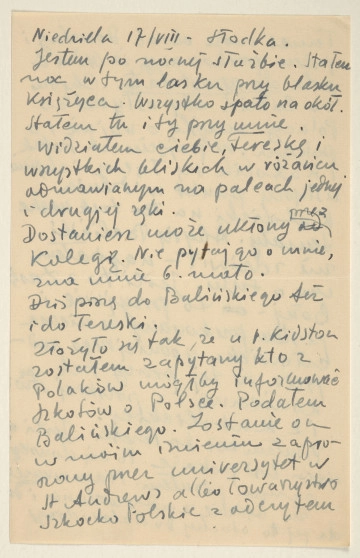 Niedziela 17/VIII - słodka.
Jestem po nocnej służbie. Stałem
noc w tym lasku przy blasku
księżyca. Wszystko spało na okół.
Stałem tu i ty przy mnie.
Widziałem ciebie, Tereskę i
wszystkich bliskich w różańcu
odmawianym na palcach jednej
i drugiej ręki.
Dostaniesz może ukłony przez
Kolegę. Nie pytaj go o mnie,
zna mnie b. mało.
Dziś piszę do Balińskiego też
i do Tereski.
Złożyło się tak, że u p. Kidston
zostałem zapytany kto z
Polaków mógłby informować
Szkotów o Polsce. Podałem
Balińskiego. Zostanie on
w moim imieniu zapro-
szony przez uniwersytet w
St Andrews albo Towarzystwo
Szkocko Polskie z odczytem